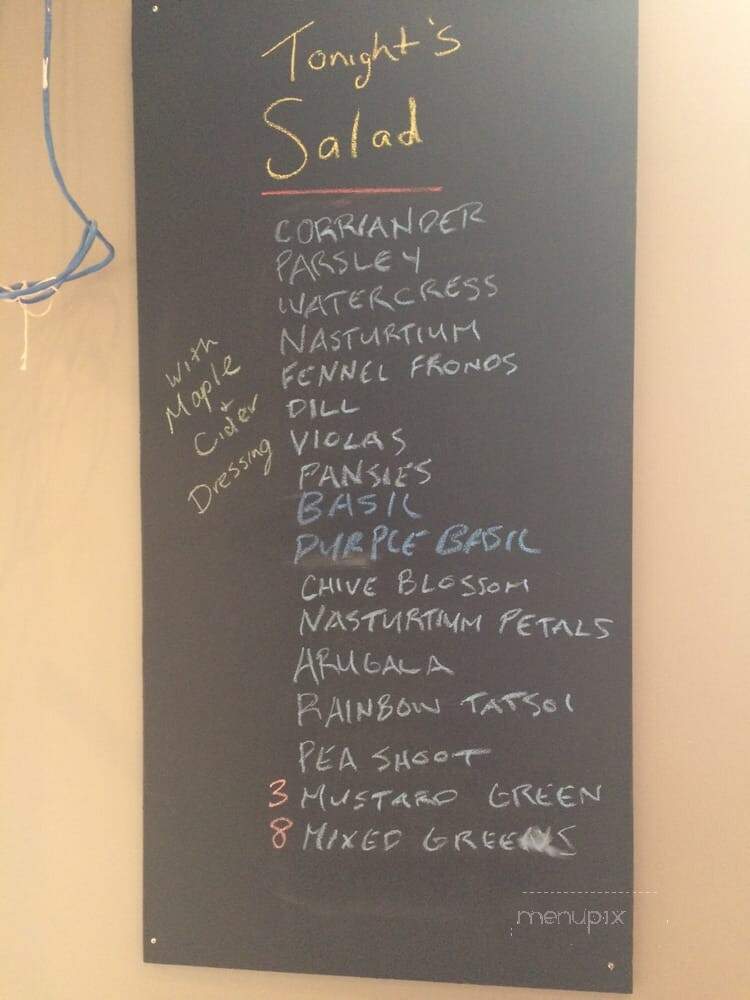 Tonight's
Salad
CORRIANDER
PARSLEY
WATERCRESS
NASTURTIUM
FENNEL FRONDS
DILL
VIOLAS
PANSIES
BASIL
PURPLE BASIL
CHIVE BLOSSOM
NASTURTIUM PETALS
ARUGALA
RAINBOW TATSOI
PEA SHOOT
3 MUSTARD GREEN
8 MIXED GREENS
With
Maple
+
Cider
Dressing
menupix